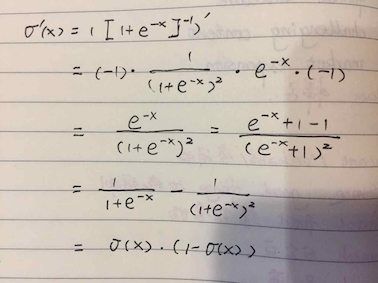 σ'(x) = ( [1+e^{-x}]^{-1})'
= (-1) · \frac{1}{(1+e^{-x})^2} · e^{-x} · (-1)
= \frac{e^{-x}}{(1+e^{-x})^2} = \frac{e^{-x}+1-1}{(e^{-x}+1)^2}
= \frac{1}{1+e^{-x}} - \frac{1}{(1+e^{-x})^2}
= σ(x) · (1-σ(x))